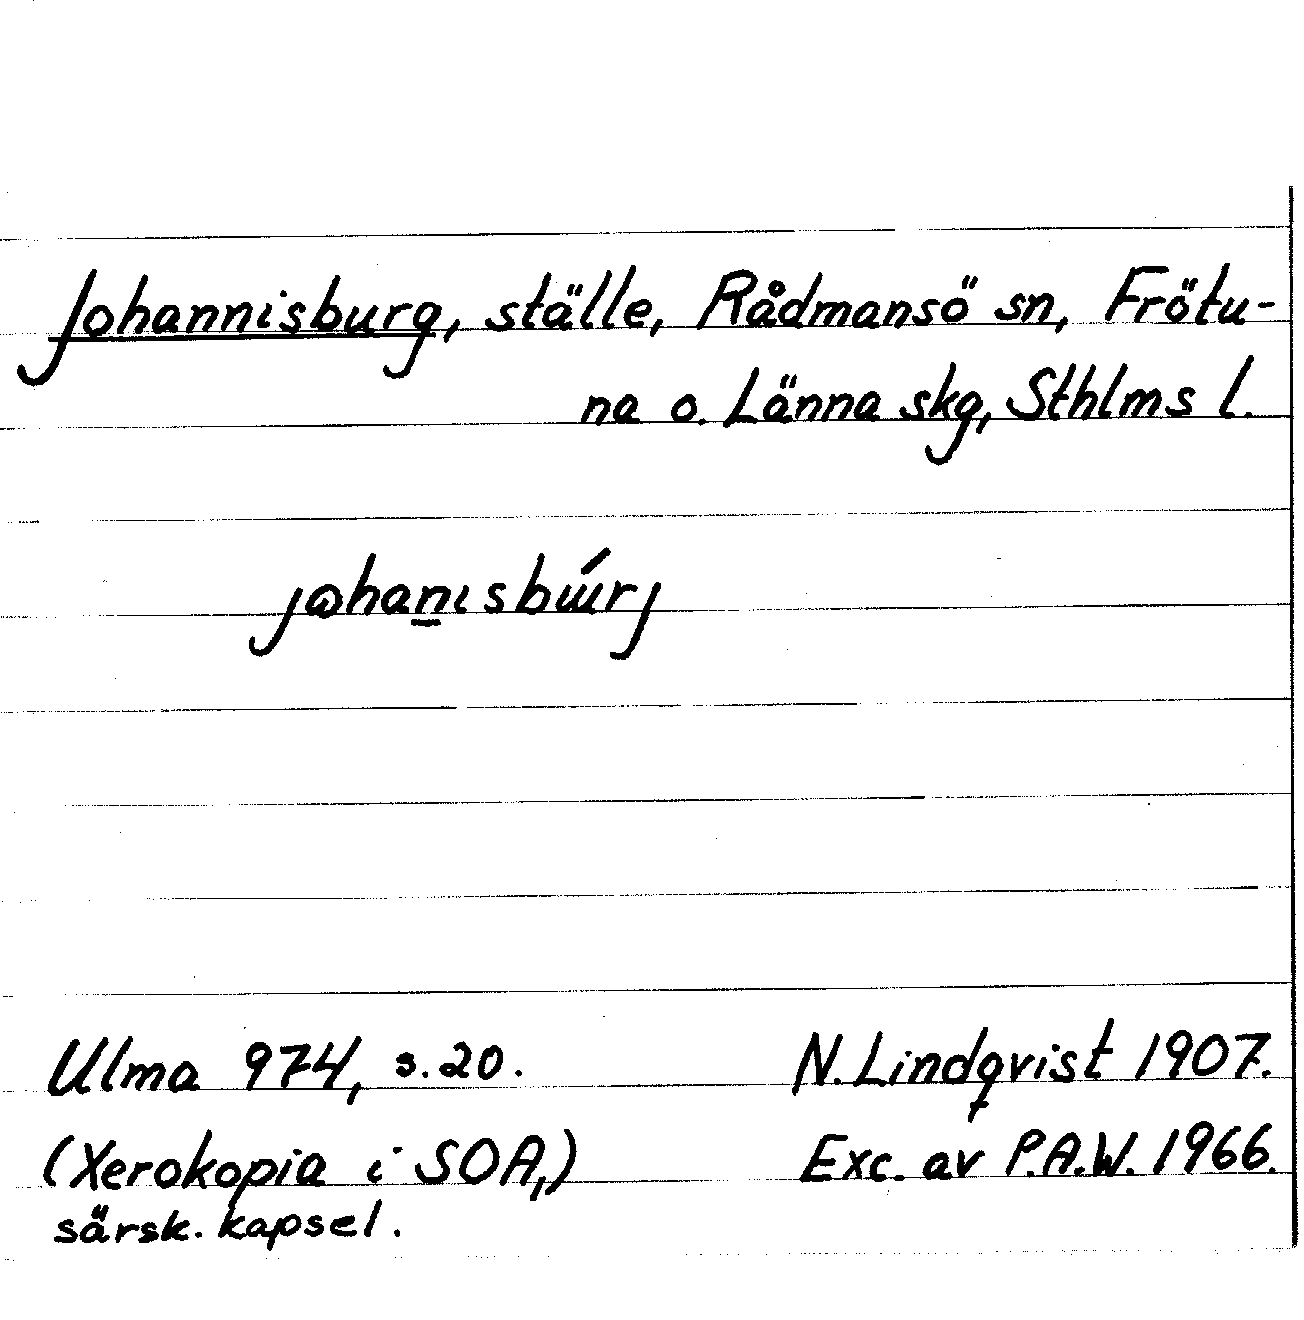 Johannisburg, ställe, Rådmansö sn, Frötu-
na o. Länna skg, Sthlms l.
Ulma 974, s. 20.
N. Lindqvist 1907.
(Xerokopia i SOA,)
Exc. av P.A.W. 1966.
särsk. kapsel.